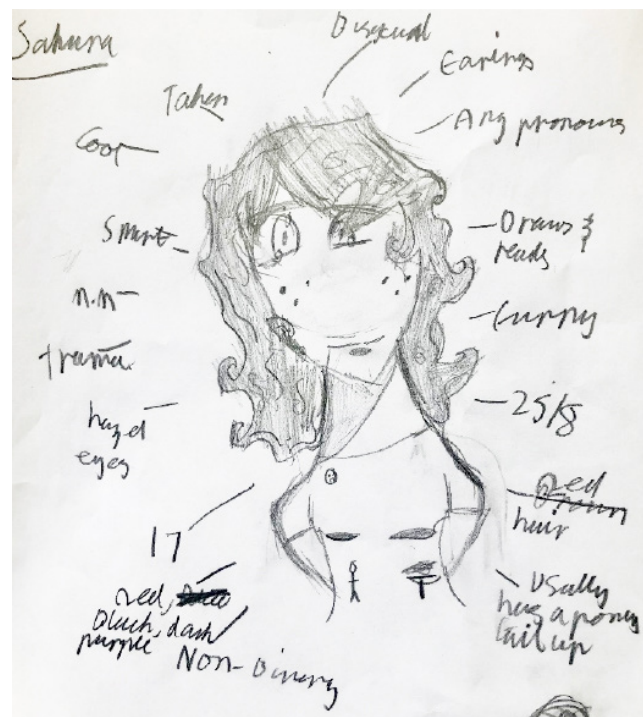 Sakura
Bisexual
Earings
Taken
Any pronouns
Cool
Draws &
reads
Smart
n.n
Funny
trama
25kg
hazel
eyes
red
hair
17
Usally
has a pony
tail up
red,
black, dark
purple
Non-binary